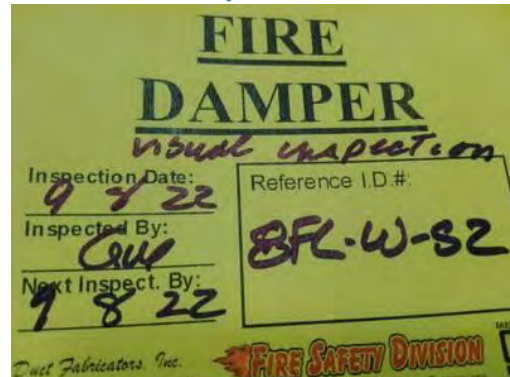 FIRE
DAMPER
visual inspection
Inspection Date:
9 8 22
Inspected By:
Next Inspect. By:
9 8 22
Reference I.D.#:
8FL-W-S2
Duct Fabricators, Inc.
FIRE SAFETY DIVISION